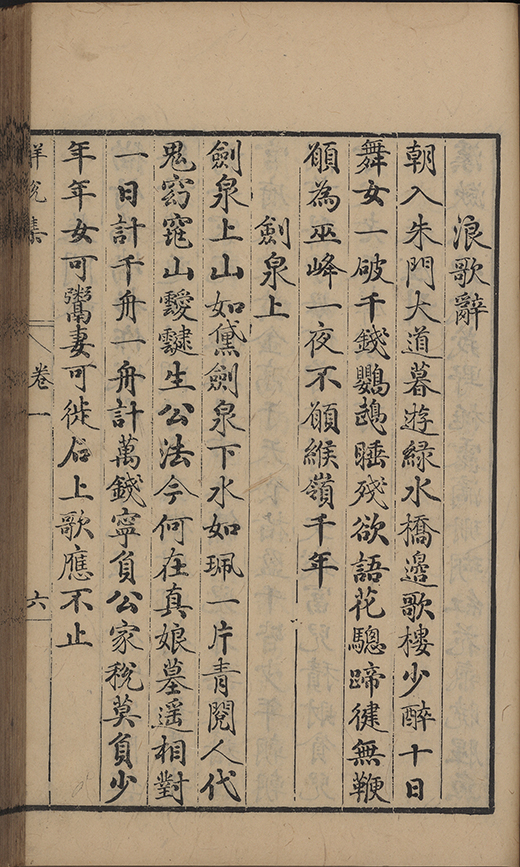 浪歌辭
朝入朱門大道暮遊緑水橋邉歌樓少醉十日
舞女一破千錢鸚鵡睡殘欲語花驄蹄健無鞭
願為巫峰一夜不願緱嶺千年
劍泉上
劍泉上山如黛劍泉下水如珮一片青閱人代
鬼窈窕山靉靆生公法今何在真娘墓遥相對
一日計千舟一舟計萬錢寧負公家稅莫負少
年年女可鬻妻可徙石上歌應不止
卷一
六